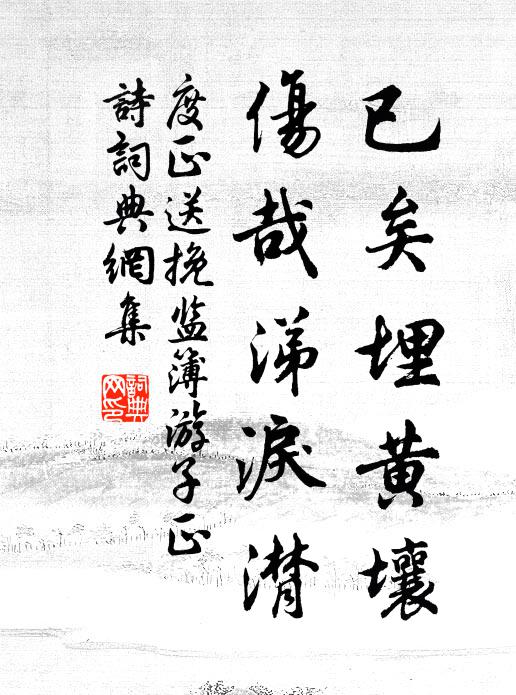 已矣埋黃壤
傷哉涕淚潸
度正送挽監簿游子正
詩詞典網集
詞典
网印